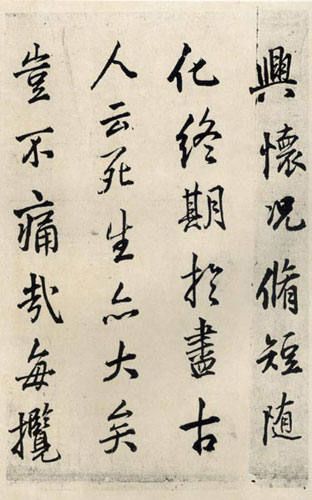 興懷況脩短随
化終期於盡古
人云死生亦大矣
豈不痛哉每攬